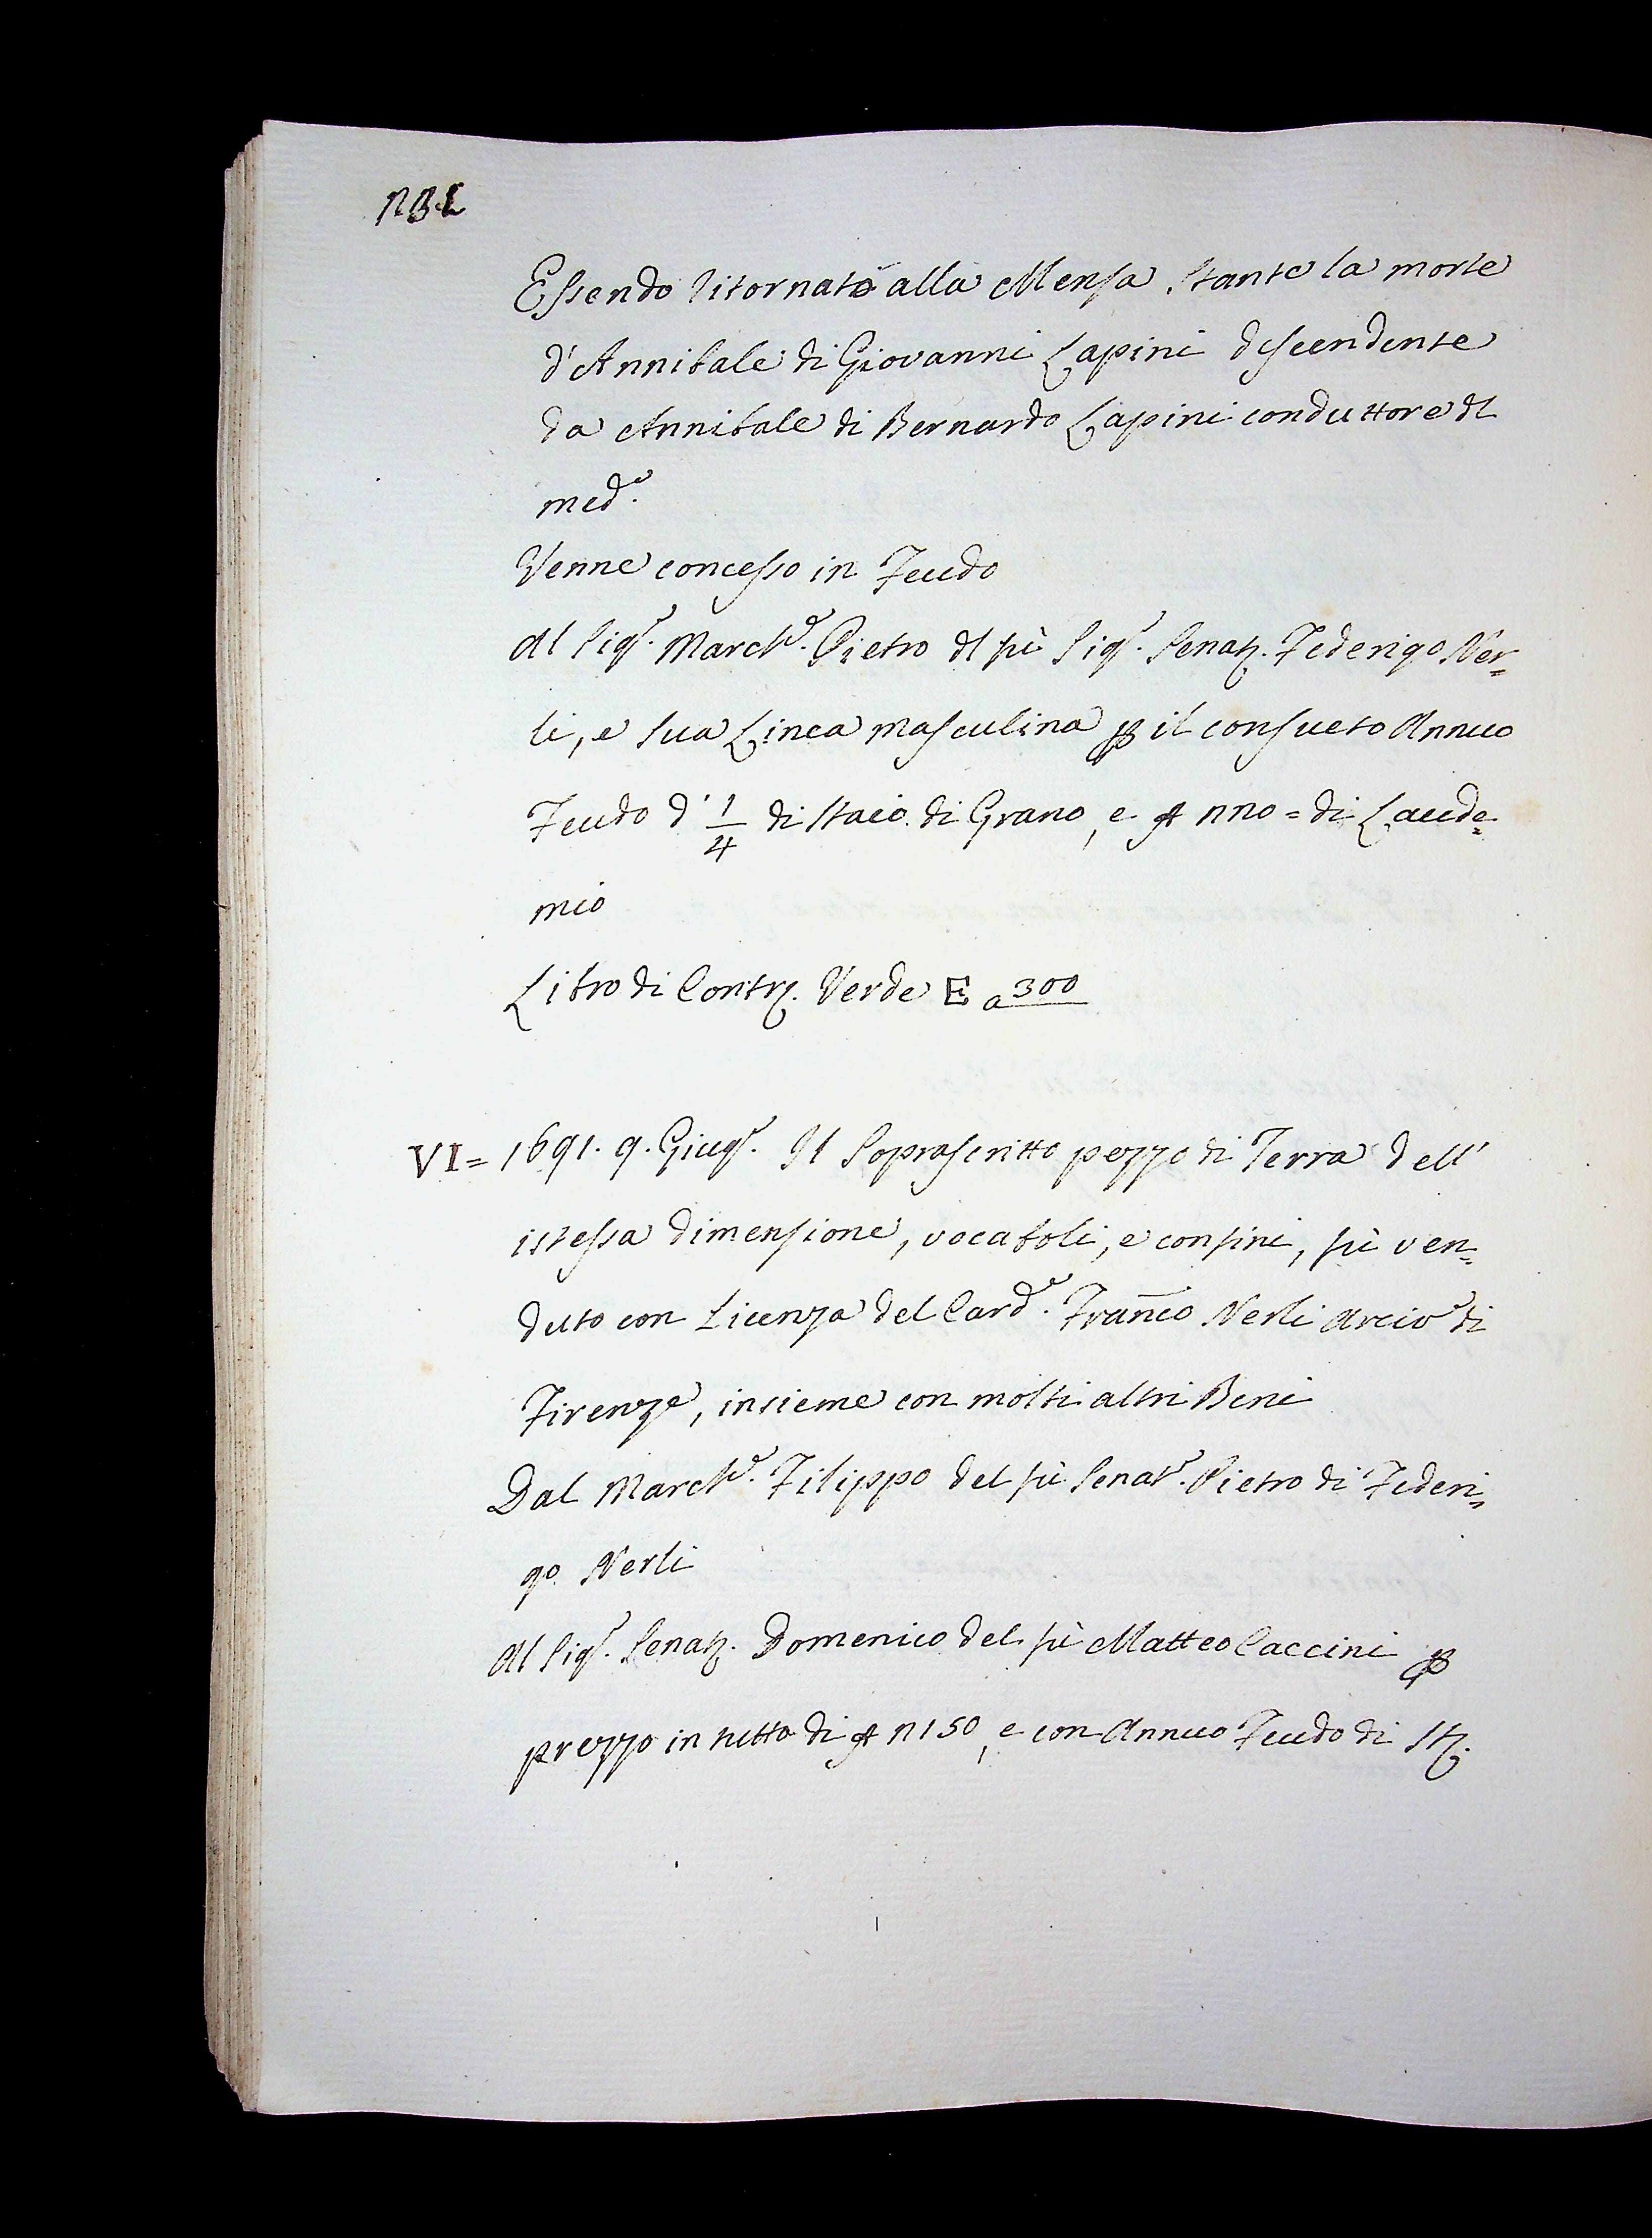 Essendo ritornato alla Mensa stante la morte
d'Annibale di Giovanni Lapini descendente
da Annibale di Bernardo Lapini conduttore dl
med.º
Venne concesso in Feudo
Al Sigʳ. Marchᵉ. Pietro dl fù Sigʳ. Senatʳ. Federigo Ner=
li, e sua Linea masculina ꝑ il consueto Annuo
Feudo d' 1/4 di staio di Grano, e di Laude=
mio
Libro di Contrⁱ. Verde E a 300
VI= 1691. 9. Giugº. Il soprascritto pezzo di Terra dell'
istessa dimensione, vocaboli, e confini, fù ven=
duto con Licenza del Cardᵉ. Franc̄o Nerli Arcivº di
Firenze, insieme con molti altri Beni
Dal Marchᵉ. Filippo del fù Senatʳ. Pietro di Federi=
go Nerli
Al Sigʳ. Senatʳ. Domenico del fù Matteo Caccini ꝑ
prezzo in tutto di n150, e con Annuo Feudo di Stᵃ.